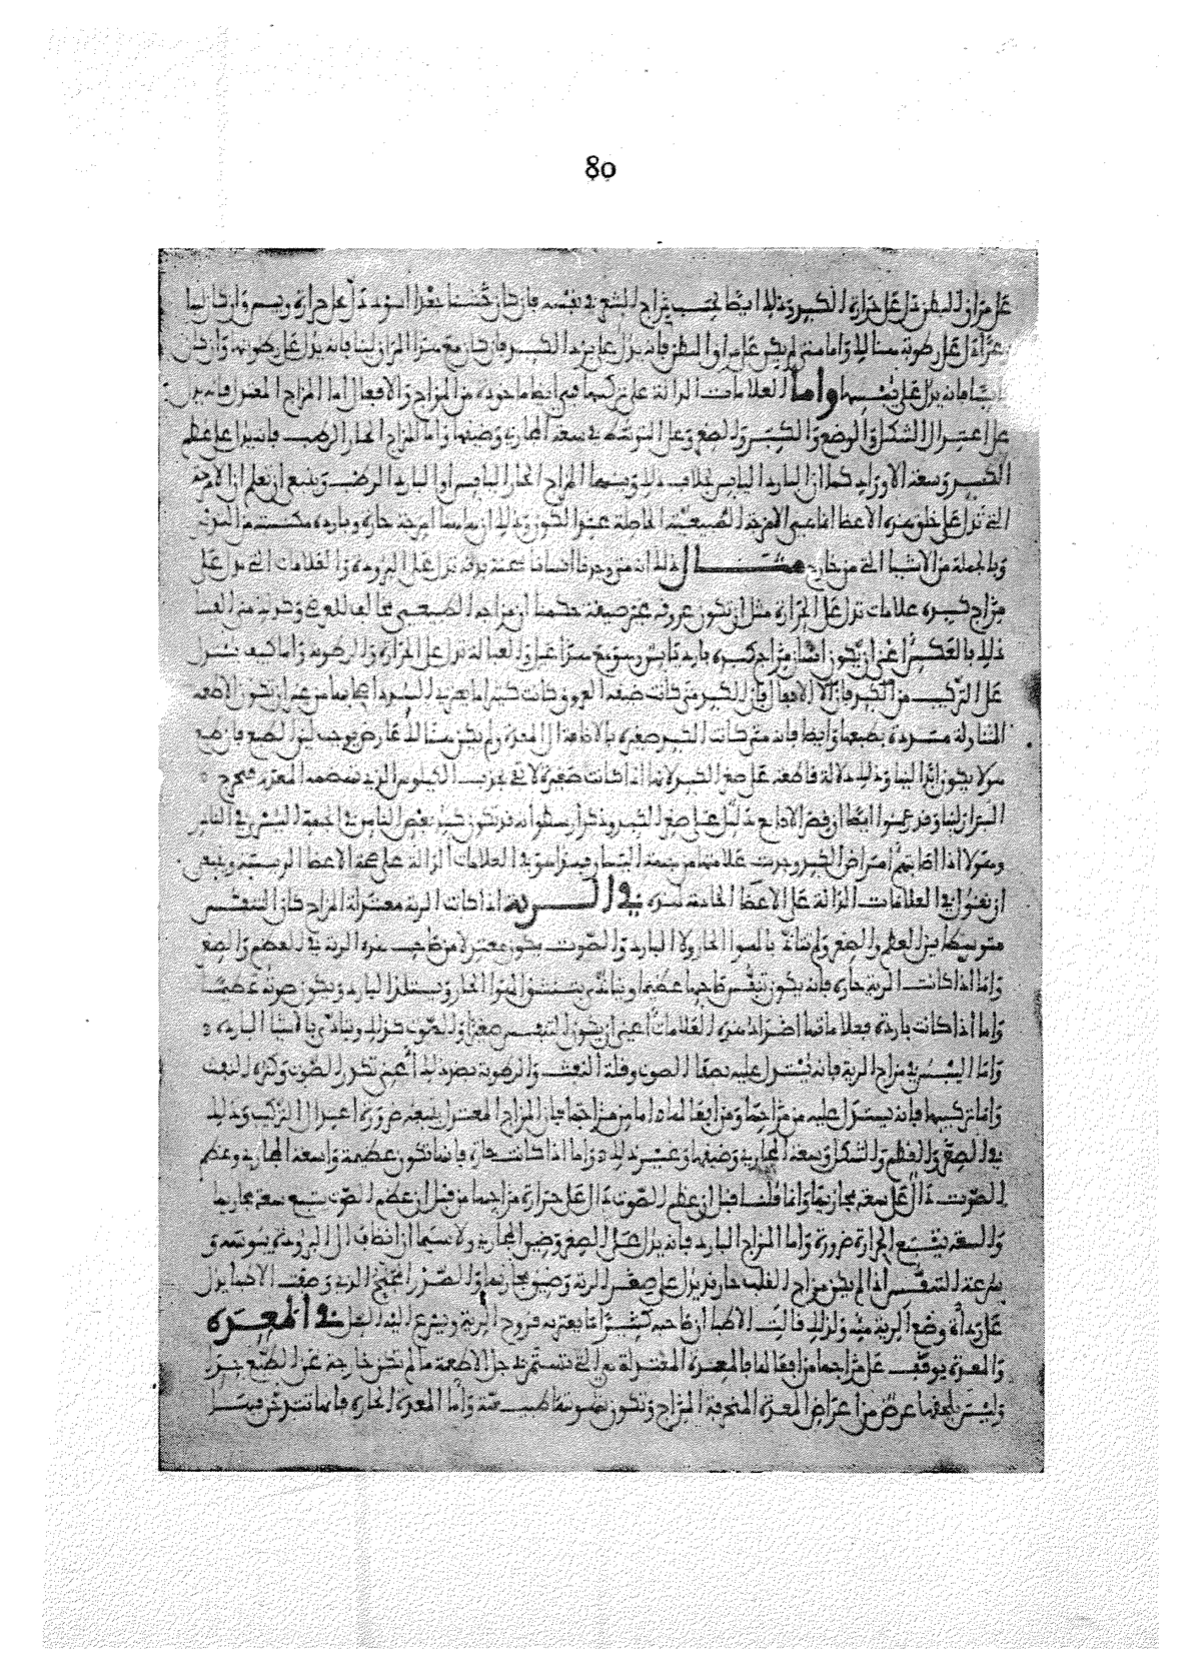 80
على مراق البطن دل على حرارة الكبد وذلك ايضا بحسب مزاج الشعر في نفسه فان كان خشنا جعدا اسود دل على حرارة ويبس وان كان لينا
دل على رطوبة هنالك واما متى لم يكن على مراق البطن فانه يدل على برد الكبد فان كان مع هذا المراق لينا فانه يدل على رطوبته وان كان
يابسا فانه يدل على يبسها واما العلامات الدالة على تركيبها فهي ايضا ماخوذة من المزاج والافعال اما المزاج المعتدل فانه يدل
على اعتدال الشكل والوضع والكبر والصغر وعلى التوسط في سعة المجاري وضيقها واما المزاج الحار الرطب فانه يدل على عظم
الكبد وسعة الاوراد كما ان البارد اليابس بخلاف ذلك وبينهما المزاج الحار اليابس او البارد الرطب وينبغي ان تعلم ان الامزجة
التي تدل على خلق هذه الاعضا انما هي الامزجة الطبيعية الحاصلة عند الكون وذلك ان هاهنا امزجة حارة وباردة مكتسبة من التدبير
وبالجملة من الاشيا التي من خارج مثال ذلك انه متى وجدنا انسانا سحنة بدنه تدل على البرودة والعلامات التي تدل على
مزاج كبده علامات تدل على الحرارة مثل ان تكون عروقه غير ضيقة حكمنا ان مزاجه الطبيعي مخالف للعرضي وكذلك متى الفينا
ذلك بالعكس اعني ان يكون انسان مزاج كبده بارد يابس وهو مع هذا عبل والعبالة تدل على الحرارة والرطوبة واما كيف يستدل
على التركيب من الكبد فان الافعال فان الكبد متى كانت ضيقة العروق كانت كثيرا ما يعتريه السدد ايما من غير ان تكون الاطعمة
المتناولة مسددة بطبعها وايضا فانه متى كانت الكبد صغيرة بالاضافة الى المعدة ولم يكن هنالك عارض يوجب لين الطبع فان طبع
هولا يكون ابدا لينا وذلك دلالة قاطعة على صغر الكبد لانها اذا كانت صغيرة لا تفي بجذب الكيلوس الذي تهضمه المعدة فيخرج
البراز لينا وقد زعموا ايضا ان قصر الاصابع دليل على صغر الكبد وذكر ارسطو انه قد تكون كبد بعض الناس في الجهة اليسرى في النادر
وهولا اذا اصابهم امراض الكبد وجدت علاماتها من جهة اليسار فهذا هو في العلامات الدالة على صحة الاعضا الرئيسة وينبغي
ان نقول في العلامات الدالة على الاعضا الخادمة لهذه في الرية اذا كانت الرية معتدلة المزاج كان التنفس
متوسطا بين العظم والصغر ولم تتاذ بالهوا الحار ولا البارد والصوت يكون معتدلا من صاحب هذه الرية في العظم والصغر
واما اذا كانت الرية حارة فانه يكون تنفس صاحبها عظيما ويتاذى بتنشق الهوا الحار ويستلذ البارد ويكون صوته عظيما
واما اذا كانت باردة فعلاماتها اضداد هذه العلامات اعني ان يكون التنفس صغيرا والصوت كذلك ويتاذى بالاشيا الباردة
واما اليبس في مزاج الرية فانه يستدل عليه بصفا الصوت وقلة النفث والرطوبة بضد ذلك اعني تكدر الصوت وكثرة النفث
واما تركيبها فانه يستدل عليه من مزاجها ومن افعالها اما من مزاجها فان المزاج المعتدل يتبعه ضرورة اعتدال التركيب وذلك
في الصغر والعظم والشكل وسعة المجاري وضيقها وغير ذلك واما اذا كانت حارة فانها تكون عظيمة واسعة المجاري وعظم
الصوت دال على سعة مجاريها وانما قلنا قبل ان عظم الصوت دال على حرارة مزاجها من قبل ان عظم الصوت يتبع سعة مجاريها
والسعة تتبع الحرارة ضرورة واما المزاج البارد فانه يدل على الصغر وضيق المجاري ولا سيما ان انضاف الى البرودة يبوسة و
سرعة التنفس اذا لم يكن مزاج القلب حار قد يدل على صغر الرية وضيق مجاريها والصدر المجنح الردي وصف الاطبا يدل
على رداة وضع الرية فيه ولذلك قالت الاطبا ان صاحبه كثيرا ما يعتريه قروح الرية ويسرع اليه السل في المعدة
والمعدة يوقف على مزاجها من افعالها فالمعدة المعتدلة هي التي تستمري جل الاطعمة ما لم تكن خارجة عن الطبع جدا
وليس يلحقها عرض من اعراض المعدة المنحرفة المزاج وتكون شهوتها طبيعية واما المعدة الحارة فانها تتدخن فيها